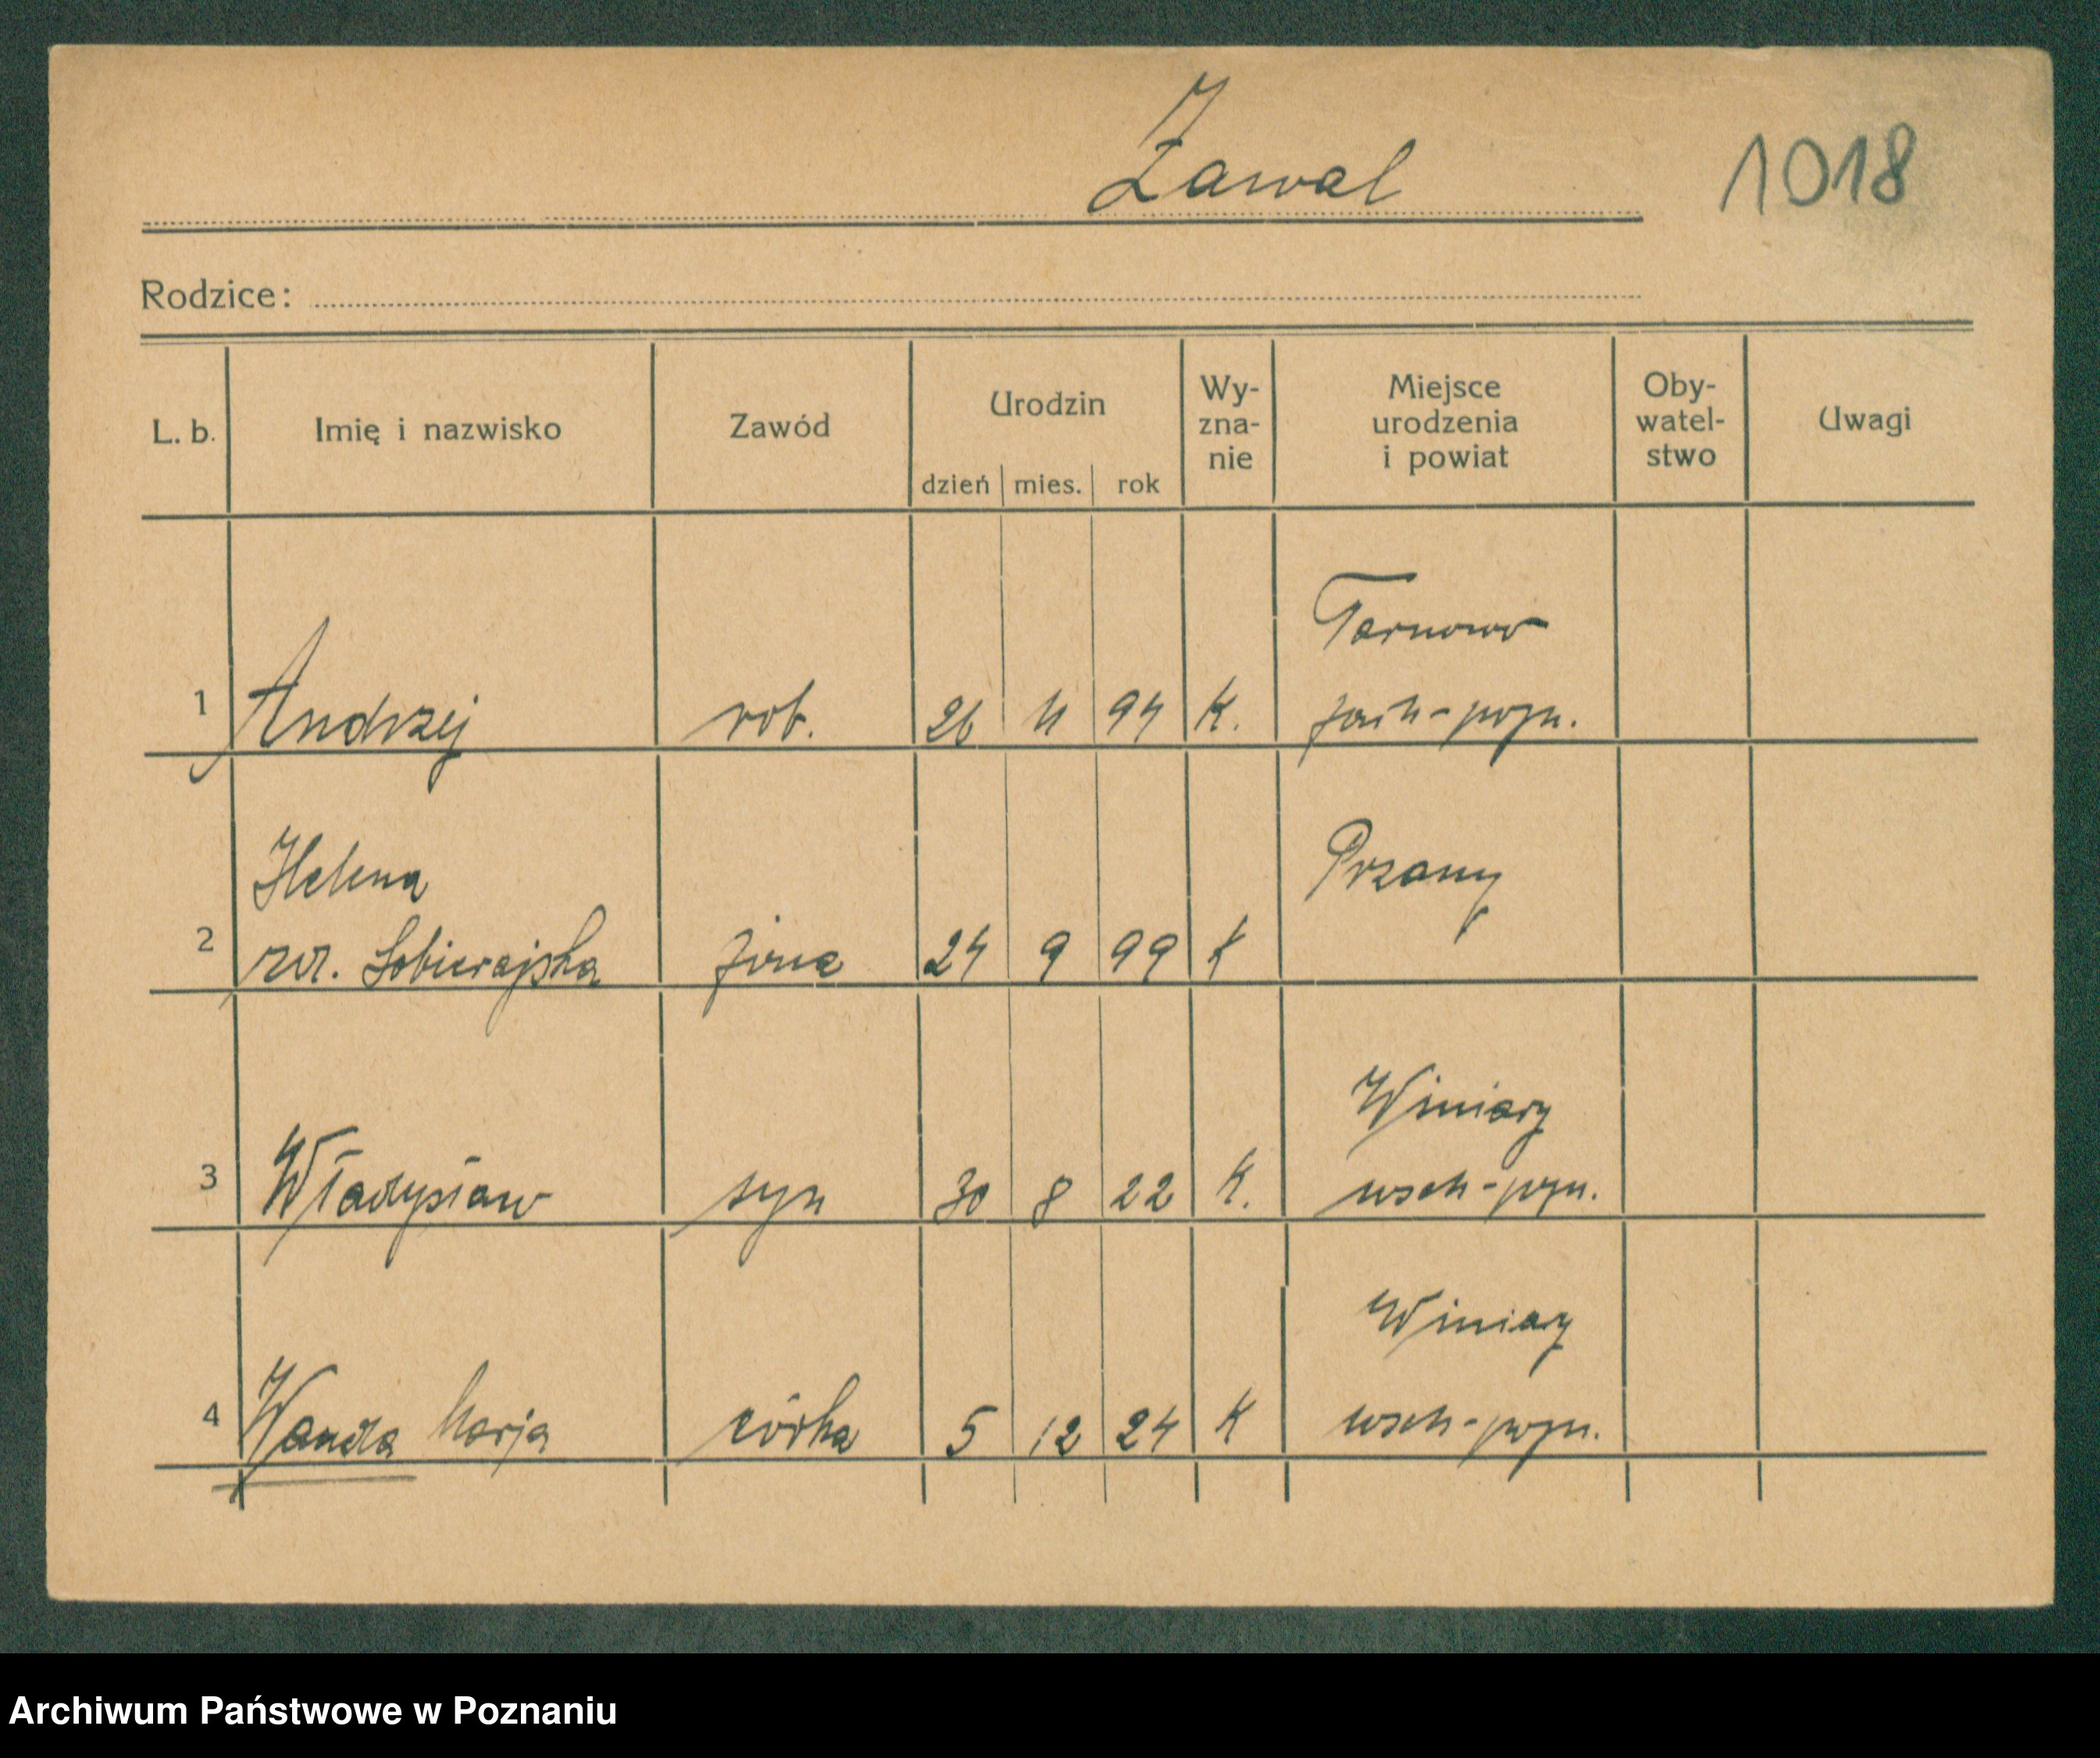 Zawal
1018
Rodzice:
L. b.
Imię i nazwisko
Zawód
Urodzin
dzień mies. rok
Wy-
zna-
nie
Miejsce
urodzenia
i powiat
Oby-
watel-
stwo
Uwagi
Tarnowo
1 Andrzej rob. 26 11 94 K. zach-pozn.
Helena
2 Sobierajska żona 24 9 99 K
Winiary
3 Władysław syn 30 8 22 K. wsch-pozn.
Winiary
4 Wanda Marja córka 5 12 24 K wsch-pozn.
Archiwum Państwowe w Poznaniu